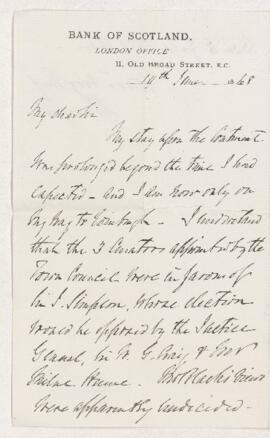 BANK OF SCOTLAND.
LONDON OFFICE
11, OLD BROAD STREET, E.C.
19th June 1868
My dear Sir
My stay upon the Continent
was prolonged beyond the time I had
expected - and I am now only on
my way to Edinburgh - I understand
that the 3 Curators appointed by the
Town Council were in favour of
Sir J. Simpson, whose election
would be opposed by the Justice
General, Sir W. G. Craig, & Govr
Milne Home.
were apparently undecided -